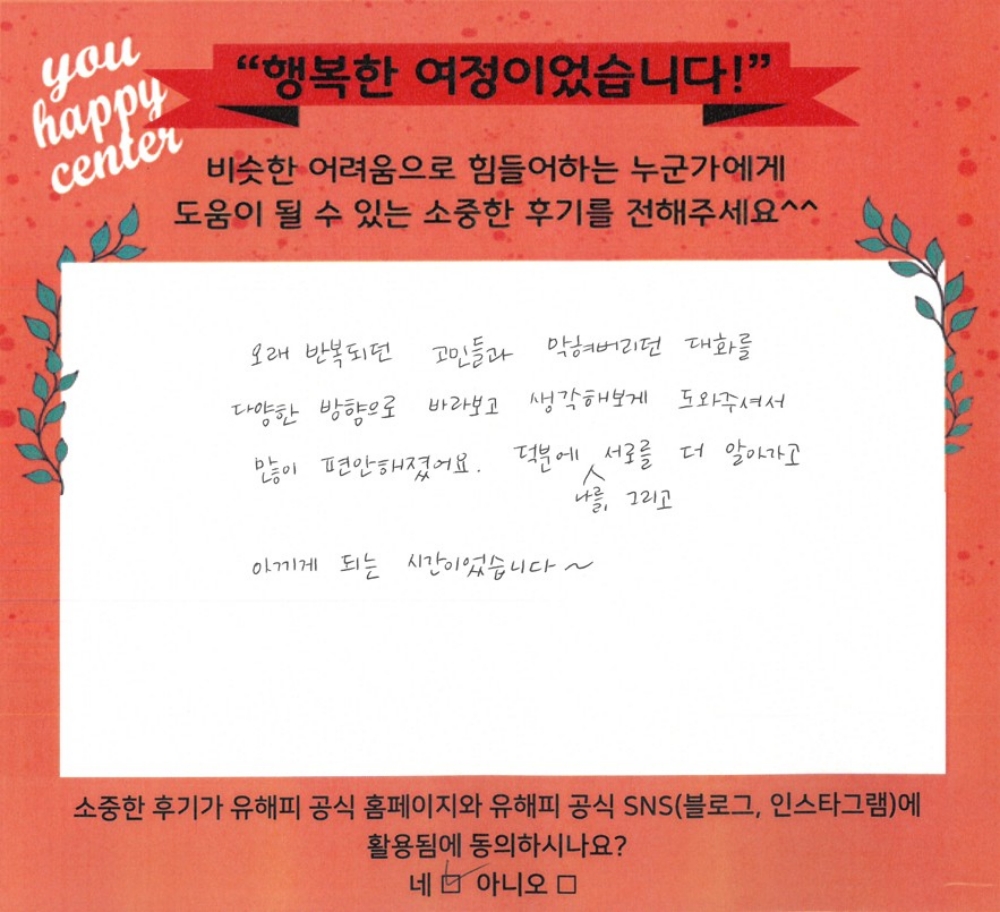 you
happy
center
“행복한 여정이었습니다!”
비슷한 어려움으로 힘들어하는 누군가에게
도움이 될 수 있는 소중한 후기를 전해주세요^^
오래 반복되던 고민들과 막혀버리던 대화를
다양한 방향으로 바라보고 생각해보게 도와주셔서
많이 편안해졌어요. 덕분에 서로를 더 알아가고
나를, 그리고
아끼게 되는 시간이었습니다~
소중한 후기가 유해피 공식 홈페이지와 유해피 공식 SNS(블로그, 인스타그램)에
활용됨에 동의하시나요?
네 ☑ 아니오 □